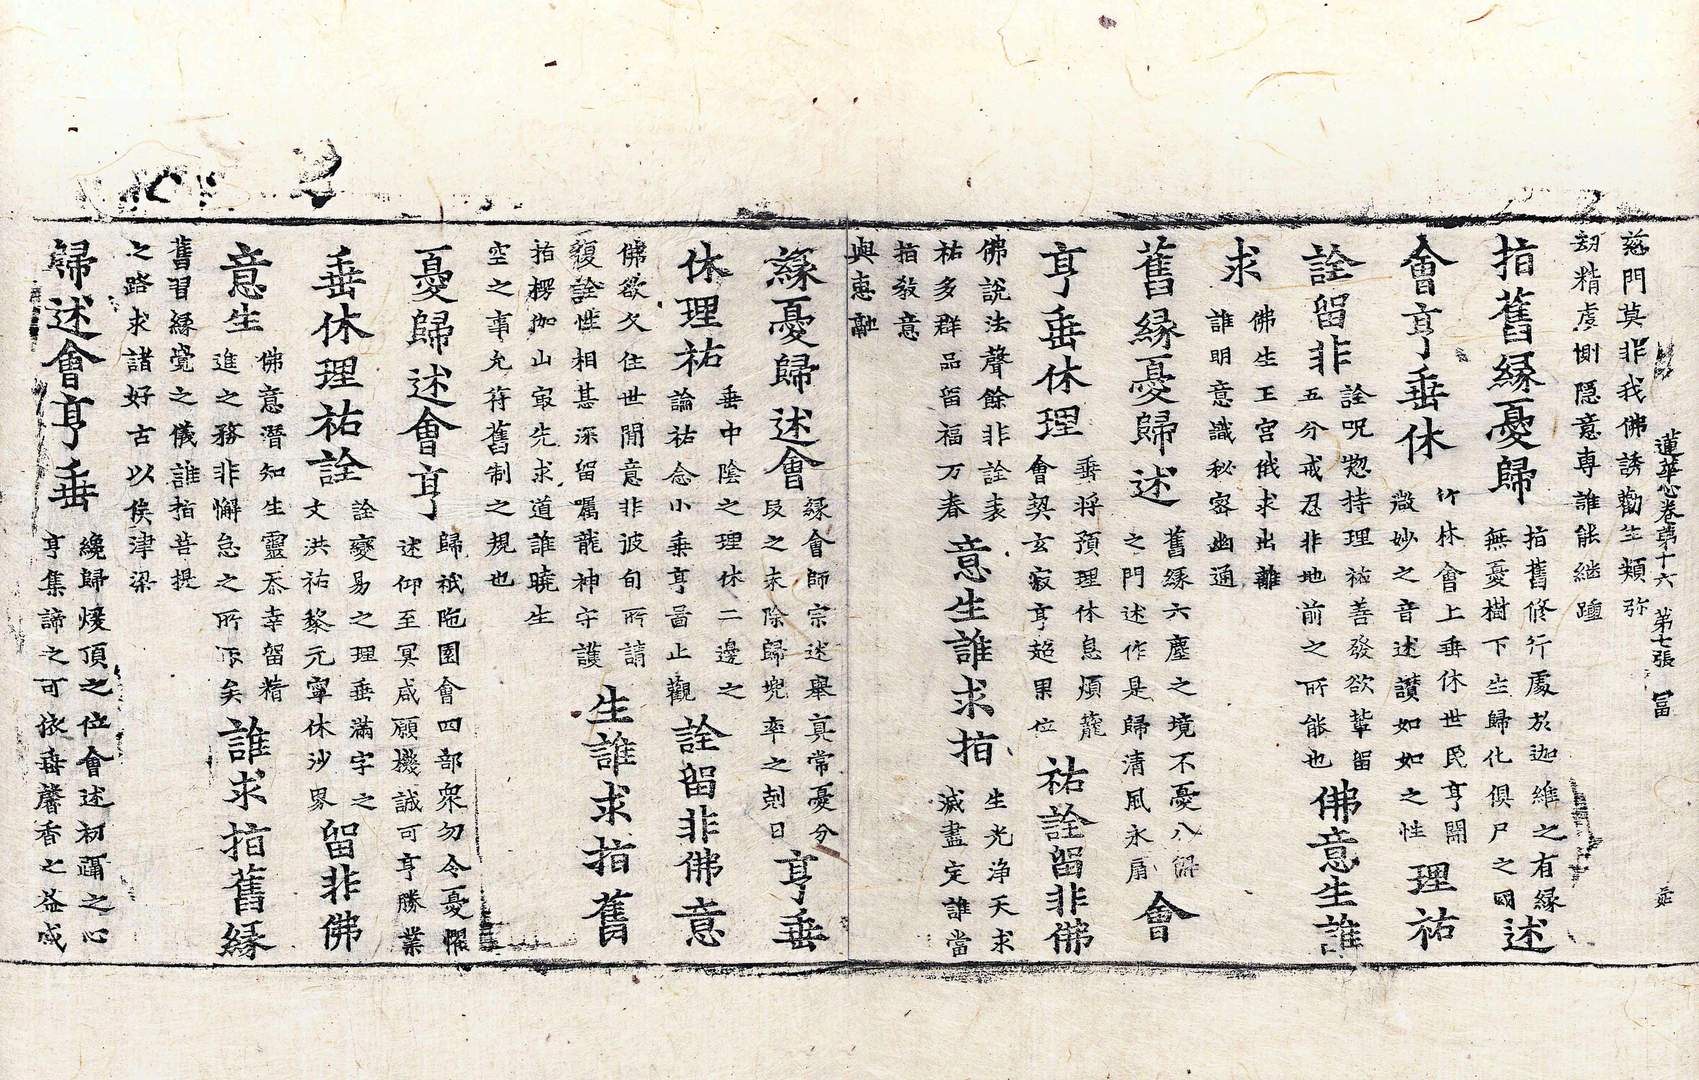 蓮華心卷第十六　第七張　冨
慈門莫非我佛誘勸生類弥
劫精虔惻隱意專誰能継踵
指舊緣憂歸
指舊修行處於迦維之有緣
無憂樹下生歸化俱尸之國
述
會亨垂休
竹林會上垂休世民亨開
微妙之音述讃如如之性
理祐
詮留非
詮呪惣持理祐善發欲輩留
五分戒忍非地前之所能也
佛意生誰
求
佛生王宮俄求出離
誰明意識秘密幽通
舊緣憂歸述
舊緣六塵之境不憂八解
之門述作是歸清風永扇
會
亨垂休理
垂將預理休息煩籠
會契玄寂亨超果位
祐詮留非佛
佛說法聲餘非詮表
祐多群品留福万春
意生誰求指
生光淨天求
滅盡定誰當
指教意
與惠融
緣憂歸述會
緣會師宗述舉真常憂分
段之未除歸兜率之剋日
亨垂
休理祐
垂中陰之理休二邊之
論祐念小乘亨啚止觀
詮留非佛意
佛欲久住世間意非彼旬所請
復詮性相甚深留囑龍神守護
生誰求指舊
指楞伽山㝡先求道誰曉生
空之事允符舊制之規也
憂歸述會亨
歸祇陁園會四部衆勿令憂懼
述仰至冥咸願機誠可亨勝業
垂休理祐詮
詮變易之理垂滿字之
文洪祐黎元寧休沙界
留非佛
意生
佛意潛知生靈忝幸留精
進之務非懈怠之所矣
誰求指舊緣
舊習緣覺之儀誰指菩提
之路求諸好古以俟津梁
歸述會亨垂
纔歸煖頂之位會述初躡之心
亨集諦之可依垂馨香之益咸